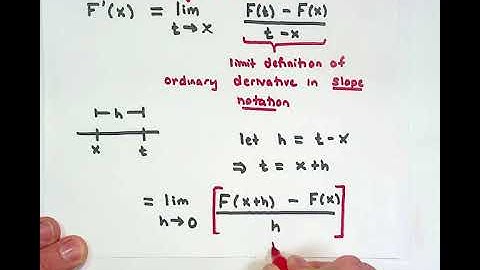 F'(x) = lim t→x F(t) - F(x) / t-x
limit definition of
ordinary derivative in slope
notation
h
x t
let h = t-x
⇒ t = x+h
= lim h→0 [ F(x+h) - F(x) / h ]